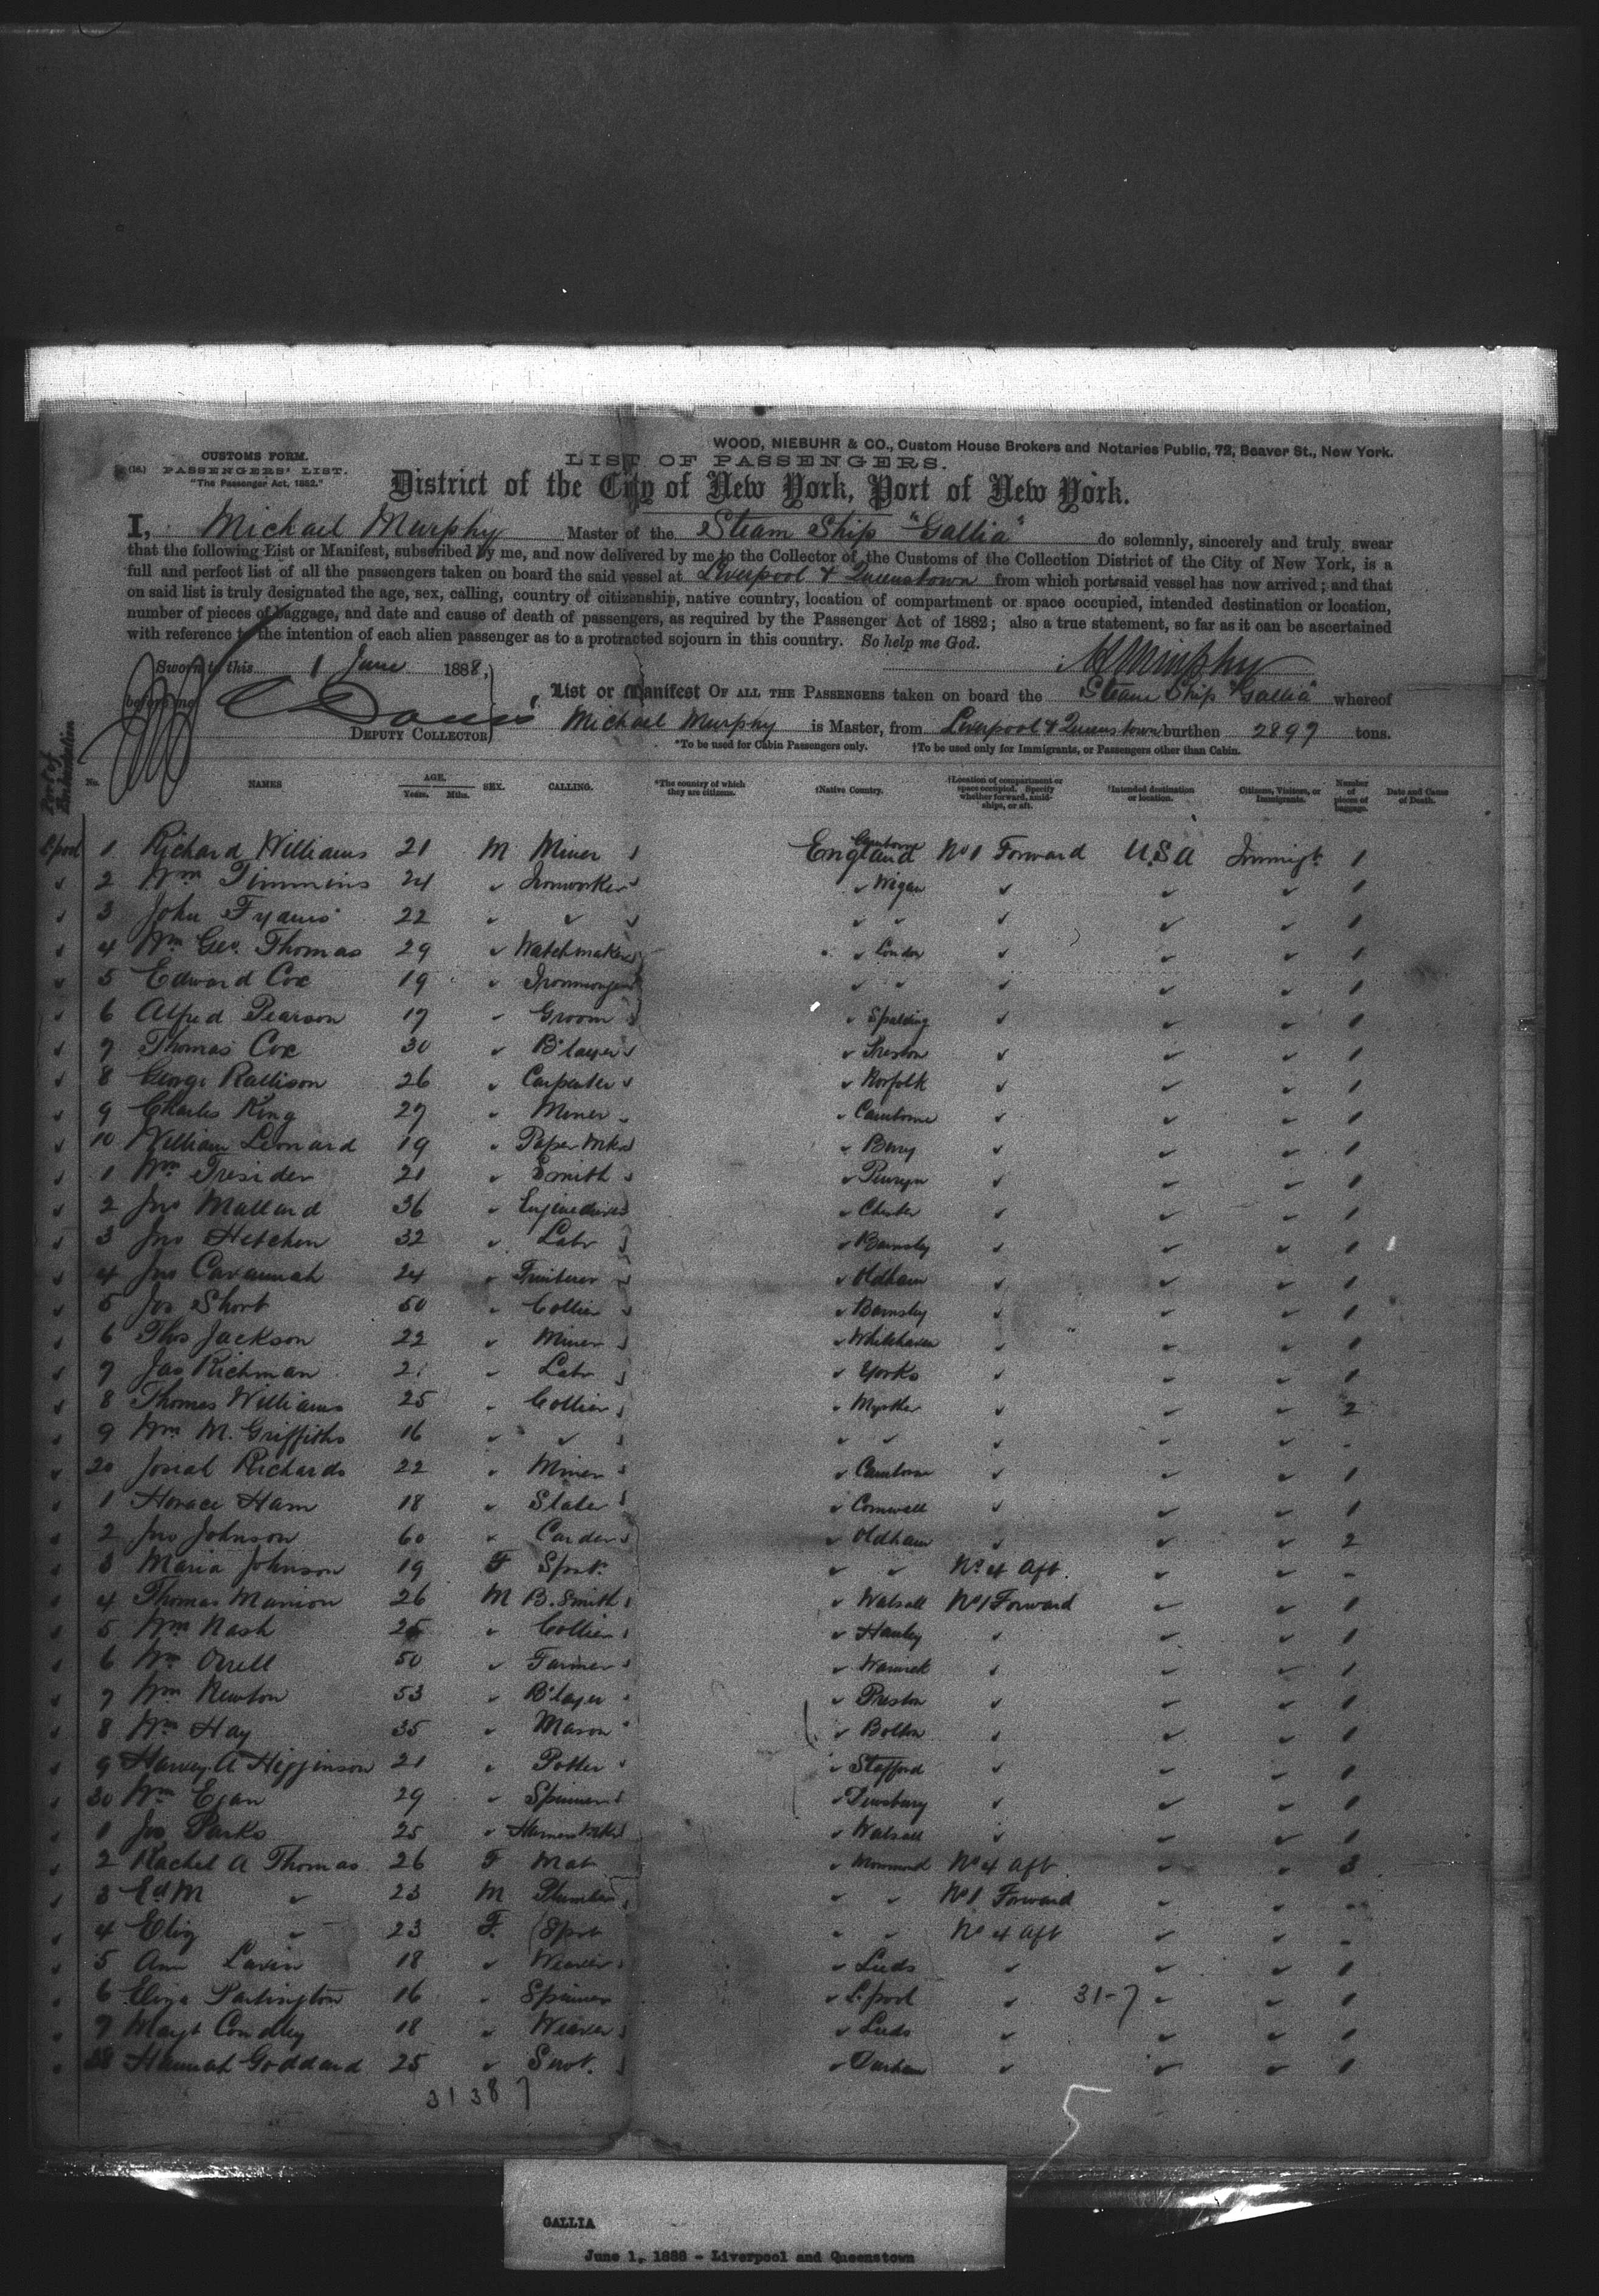 WOOD, NIEBUHR & CO., Custom House Brokers and Notaries Public, 72, Beaver St., New York.
CUSTOMS FORM.
(16.) PASSENGERS' LIST.
"The Passenger Act, 1882."
LIST OF PASSENGERS.
District of the City of New York, Port of New York.
I, Michael Murphy Master of the Steam Ship "Gallia" do solemnly, sincerely and truly swear
that the following List or Manifest, subscribed by me, and now delivered by me to the Collector of the Customs of the Collection District of the City of New York, is a
full and perfect list of all the passengers taken on board the said vessel at Liverpool & Queenstown from which port said vessel has now arrived; and that
on said list is truly designated the age, sex, calling, country of citizenship, native country, location of compartment or space occupied, intended destination or location,
number of pieces of baggage, and date and cause of death of passengers, as required by the Passenger Act of 1882; also a true statement, so far as it can be ascertained
with reference to the intention of each alien passenger as to a protracted sojourn in this country. So help me God.
Sworn to this 1 June 1888, M Murphy
before me
DEPUTY COLLECTOR
List or Manifest OF ALL THE PASSENGERS taken on board the Steam Ship "Gallia" whereof
Michael Murphy is Master, from Liverpool & Queenstown burthen 2897 tons.
*To be used for Cabin Passengers only. †To be used only for Immigrants, or Passengers other than Cabin.
Port of Embarkation No. NAMES AGE. Years. Mths. SEX. CALLING. *The country of which they are citizens. †Native Country. †Location of compartment or space occupied. Specify whether forward, amidships, or aft. †Intended destination or location. Citizens, Visitors, or Immigrants. Number of pieces of baggage. Date and Cause of Death.
L'pool 1 Richard Williams 21 M Miner England Camborne No 1 Forward USA Immigt 1
2 Wm Timmins 24 Ironworker Wigan 1
3 John 22 1
4 Wm Geo. Thomas 29 Watchmaker London 1
5 Edward Cox 19 Ironmonger 1
6 Alfred Pearson 17 Groom Spalding 1
7 Thomas Cox 30 B'layer Preston 1
8 George Rallison 26 Carpenter Norfolk 1
9 Charles King 27 Miner Camborne 1
10 William Leonard 19 Paper Mkr 1
1 Wm Tresider 21 Smith Penryn 1
2 Jno Mallard 36 Enginedriver Chester 1
3 Jno Hetchen 32 Labr Barnsley 1
4 Jno Cavannah 24 Oldham 1
5 Jos Short 50 Collier Barnsley 1
6 Thos Jackson 22 Miner Whitehaven 1
7 Jas Richman 21 Labr Yorks 1
8 Thomas Williams 25 Collier 2
9 Wm M. Griffiths 16 -
20 Josiah Richards 22 Miner Camborne 1
1 Horace Ham 18 Slater Cornwall 1
2 Jno Johnson 60 Carder Oldham 2
3 Maria Johnson 19 F Spst. No 4 Aft. -
4 Thomas Manion 26 M B. Smith Walsall No 1 Forward 1
5 Wm Nash 25 Collier Hanley 1
6 Wm Orrell 50 Farmer Warwick 1
7 Wm Newton 53 B'layer Preston 1
8 Wm Hay 35 Mason Bolton 1
9 Harvey A Higginson 21 Potter Stafford 1
30 Wm Egan 29 Spinner Dewsbury 1
1 Jos Parks 25 Harness Mkr Walsall 1
2 Rachel A Thomas 26 F Mat No 4 Aft 3
3 Ed M 23 M Plumber No 1 Forward -
4 Eliz 23 F. Spst No 4 Aft -
5 Ann Lavin 18 Weaver Leeds 1
6 Eliza Partington 16 Spinner L'pool 31-7 1
7 Margt Condley 18 Weaver Leeds 1
38 Hannah Goddard 25 Durham 1
31 38 7
5
GALLIA
June 1, 1888 - Liverpool and Queenstown